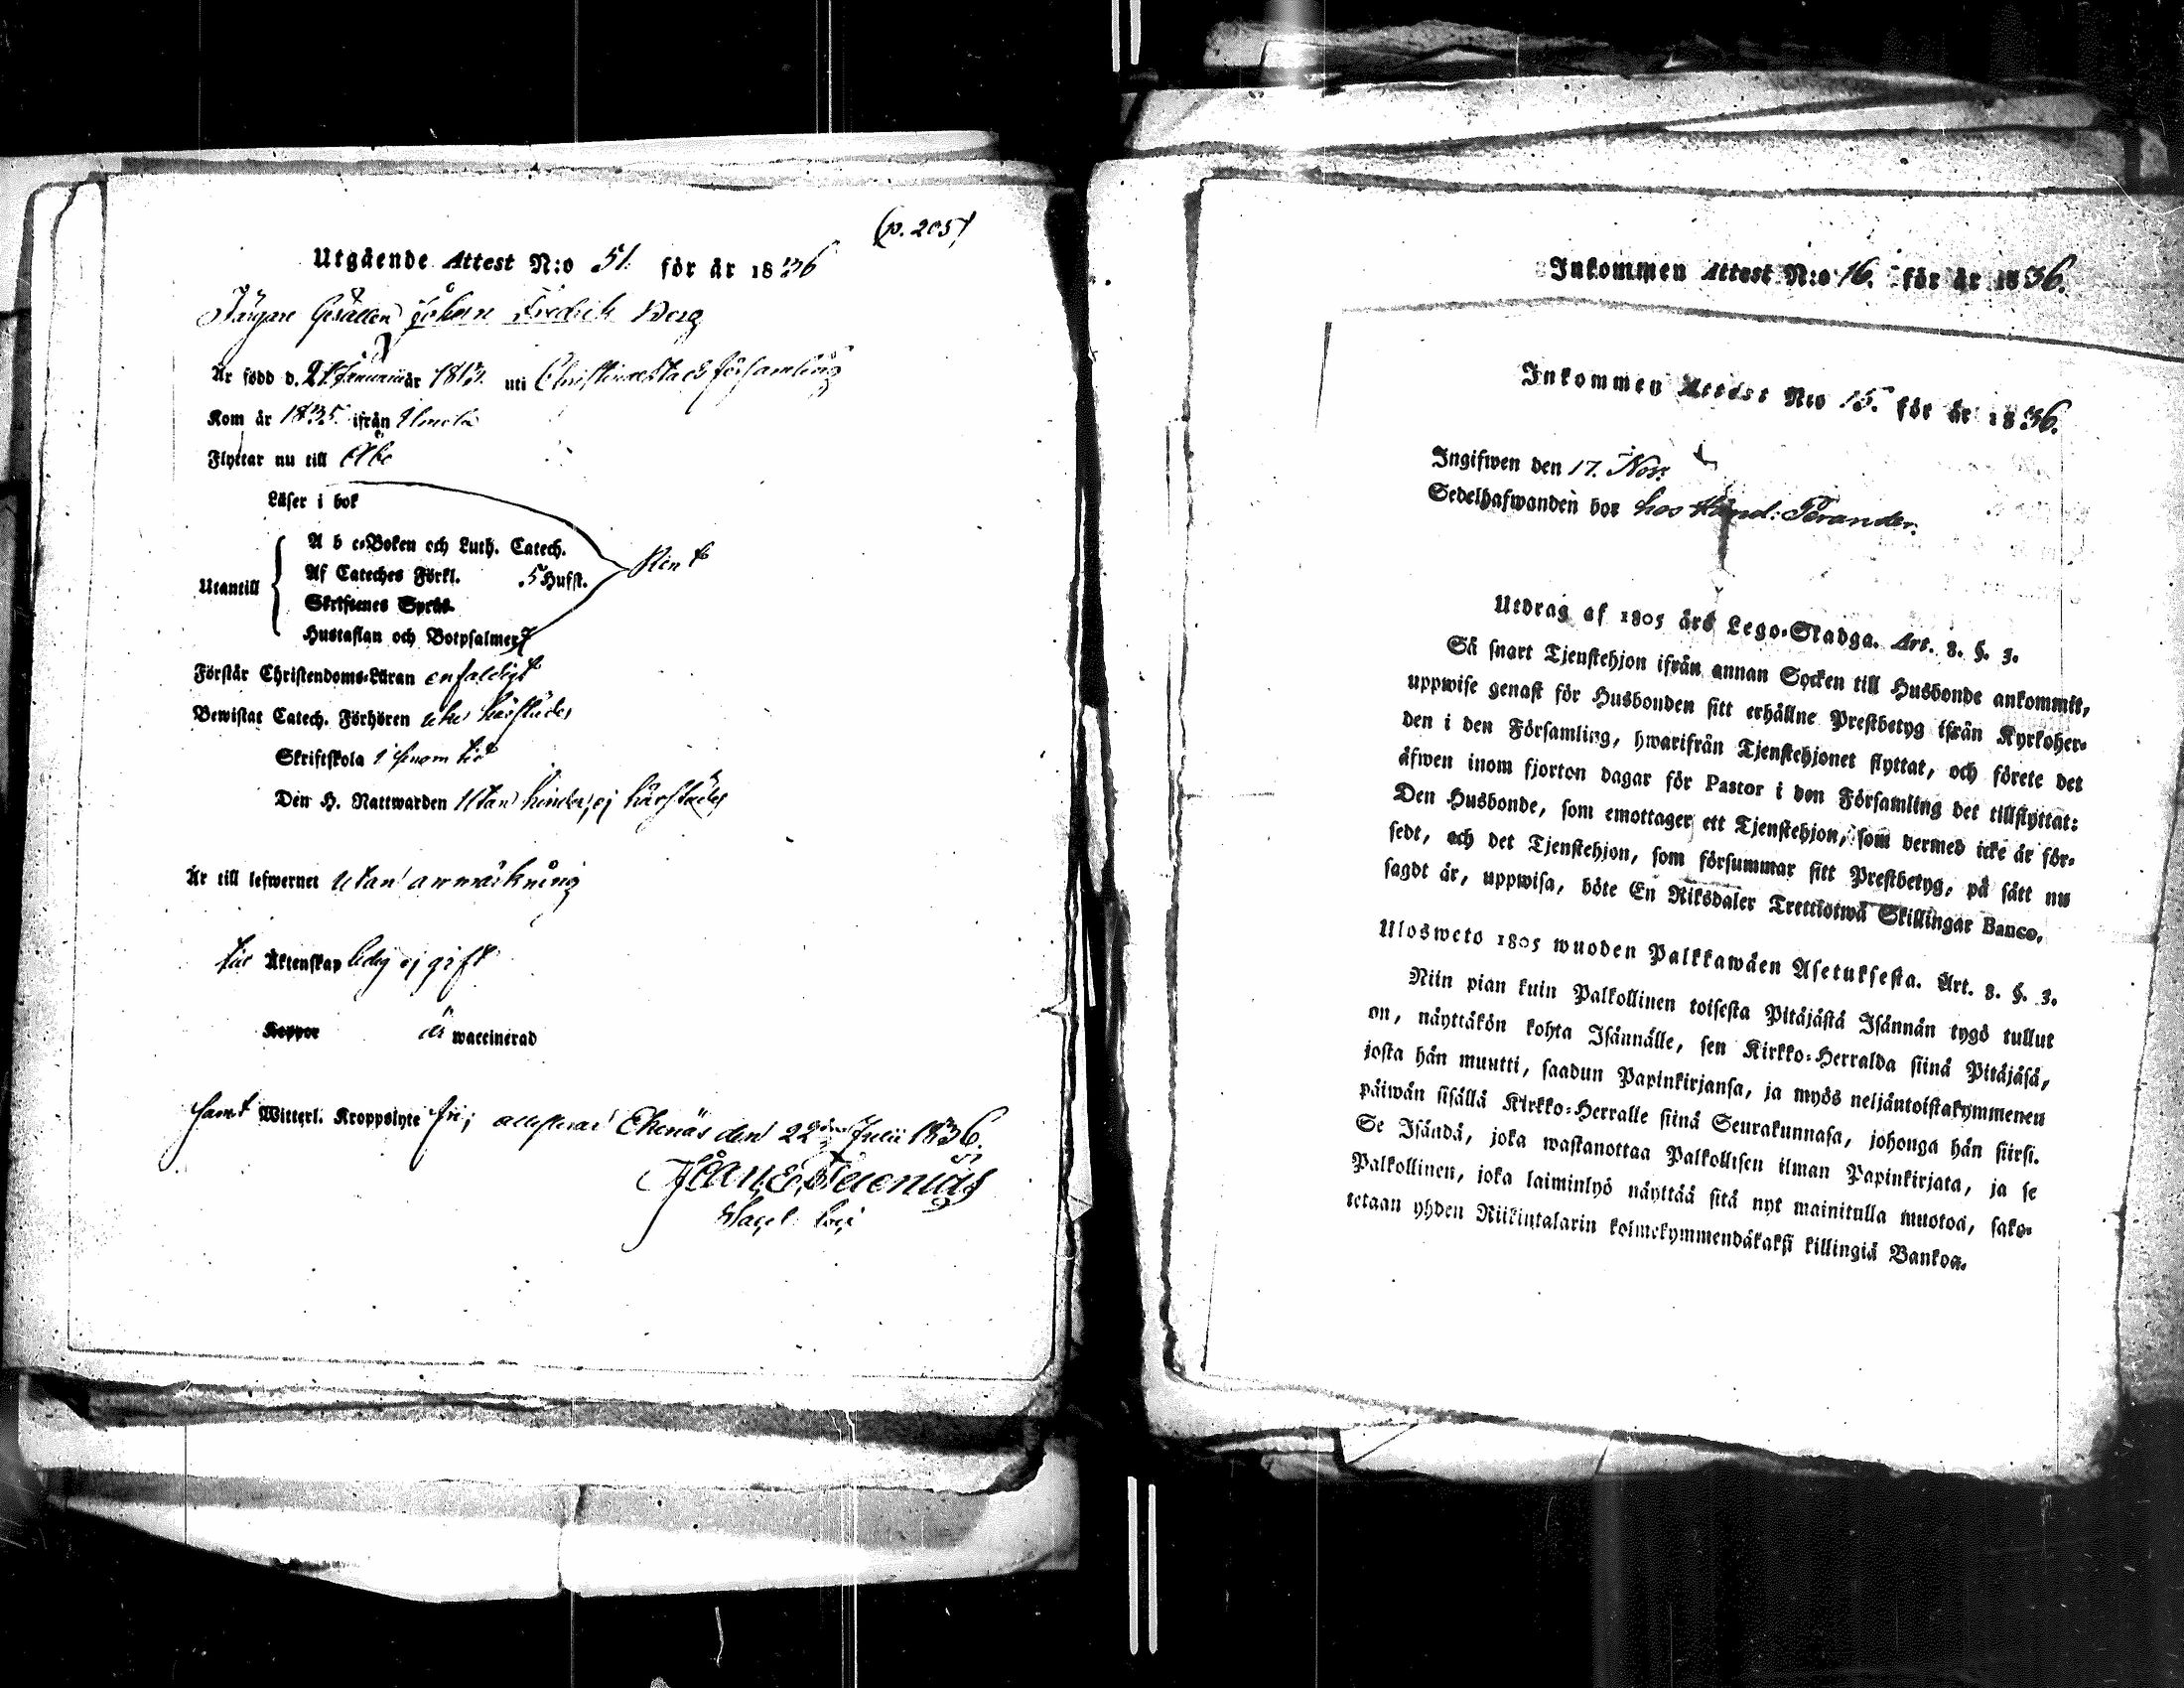 (p. 205)
Utgående Attest N:o 51. för år 1836
Färgare Gesällen Johan Fredrik Berg
Är född d. 21 Januarii år 1813. uti Christinæstads församling
Kom år 1835 ifrån Umeå
Flyttar nu till Åbo
Läser i bok
A b c-Boken och Luth. Catech.
Af Cateches Förkl. 5 Hufst.
Rent
Utantill
Skriftenes Språk
Hustaflan och Botpsalmer 7
Förstår Christendoms-Läran enfaldigt
Bewistat Catech. Förhören icke härstädes
Skriftskola i sinom tid
Den H. Nattwarden Utan hinder, ej härstädes
Är till lefwernet utan anmärkning
till Äktenskap ledig ej gift
Koppor är waccinerad
samt Witterl. Kroppslyte fri; Ekenäs den 22 Julii 1836.
Inkommen Attest N:o 16. för år 1836.
Inkommen Attest N:o 15. för år 1836.
Ingifwen den 17. Nov:
Sedelhafwanden bor hos Hand: Terander.
Utdrag af 1805 års Lego-Stadga. Art. 8. §. 3.
Så snart Tjenstehjon ifrån annan Socken till Husbonde ankommit,
uppwise genast för Husbonden sitt erhållne Prestbetyg ifrån Kyrkoher-
den i den Församling, hwarifrån Tjenstehjonet flyttat, och förete det
äfwen inom fjorton dagar för Pastor i den Församling det tillflyttat:
Den Husbonde, som emottager ett Tjenstehjon, som dermed icke är för-
sedt, och det Tjenstehjon, som försummar sitt Prestbetyg, på sätt nu
sagdt är, uppwisa, böte En Riksdaler Trettiotwå Skillingar Banco.
Ulosweto 1805 wuoden Palkkawäen Asetuksesta. Art. 8. §. 3.
Niin pian kuin Palkollinen toisesta Pitäjästä Isännän tygö tullut
on, näyttäkön kohta Isännälle, sen Kirkko-Herralda siinä Pitäjäsä,
josta hän muutti, saadun Papinkirjansa, ja myös neljäntoistakymmenen
päiwän sisällä Kirkko-Herralle siinä Seurakunnasa, johonga hän siirsi.
Se Isändä, joka wastanottaa Palkollisen ilman Papinkirjata, ja se
Palkollinen, joka laiminlyö näyttää sitä nyt mainitulla muotoa, sako-
tetaan yhden Riikintalarin kolmekymmendäkaksi killingiä Bankoa.